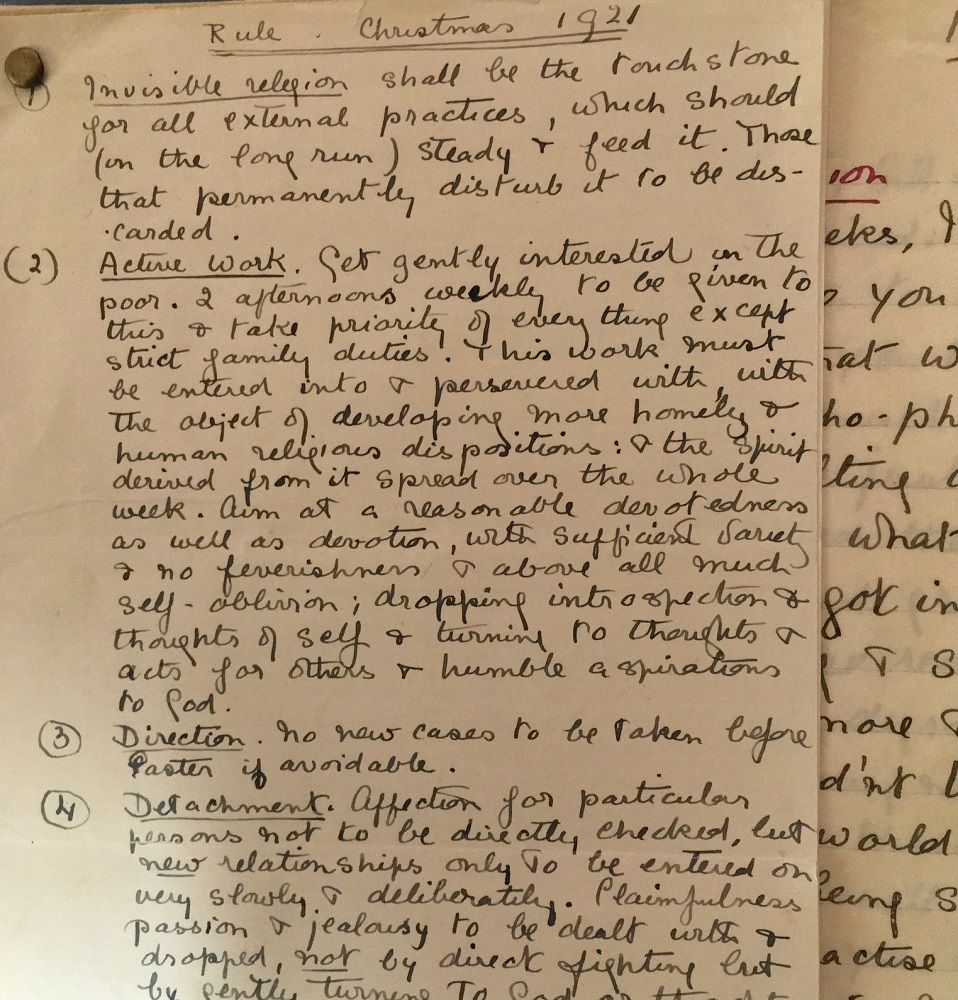 Rule. Christmas 1921
(1) Invisible religion shall be the touchstone
for all external practices, which should
(in the long run) steady & feed it. Those
that permanently disturb it to be dis-
-carded.
(2) Active Work. Get gently interested in the
poor. 2 afternoons weekly to be given to
this & take priority of everything except
strict family duties. This work must
be entered into & persevered with, with
the object of developing more homely &
human religious dispositions: & the spirit
derived from it spread over the whole
week. Aim at a reasonable devotedness
as well as devotion, with sufficient variety
& no feverishness & above all much
self-oblivion; dropping introspection &
thoughts of self & turning to thoughts &
acts for others & humble aspirations
to God.
(3) Direction. No new cases to be taken before
Easter if avoidable.
(4) Detachment. Affection for particular
persons not to be directly checked, but
new relationships only to be entered on
very slowly & deliberately. Claimfulness
passion & jealousy to be dealt with &
dropped, not by direct fighting but
by gently turning to God
ion
eks, I
you
at w
ho-ph
lting
what
got in
& s
more &
d'nt
world
eing s
actise